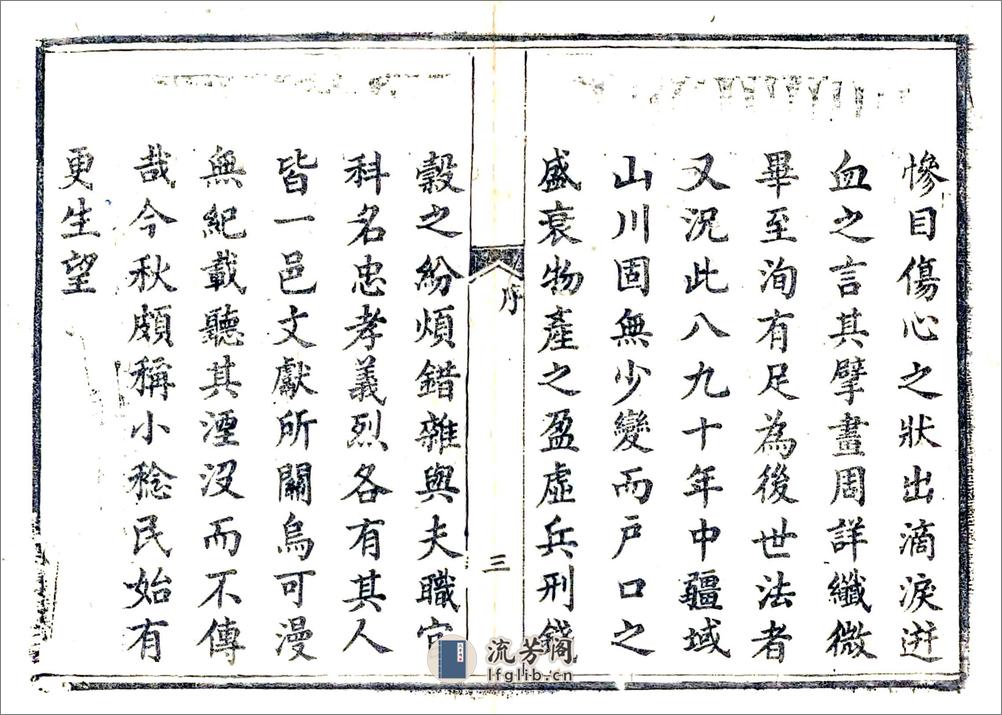 慘目傷心之狀出滴淚迸
血之言其擘畫周詳纖微
畢至洵有足為後世法者
又況此八九十年中疆域
山川固無少變而戶口之
盛衰物產之盈虛兵刑錢
序
三
穀之紛煩錯雜與夫職官
科名忠孝義烈各有其人
皆一邑文獻所關烏可漫
無紀載聽其湮沒而不傳
哉今秋頗稱小稔民始有
更生望
流芳閣
lfglib.cn